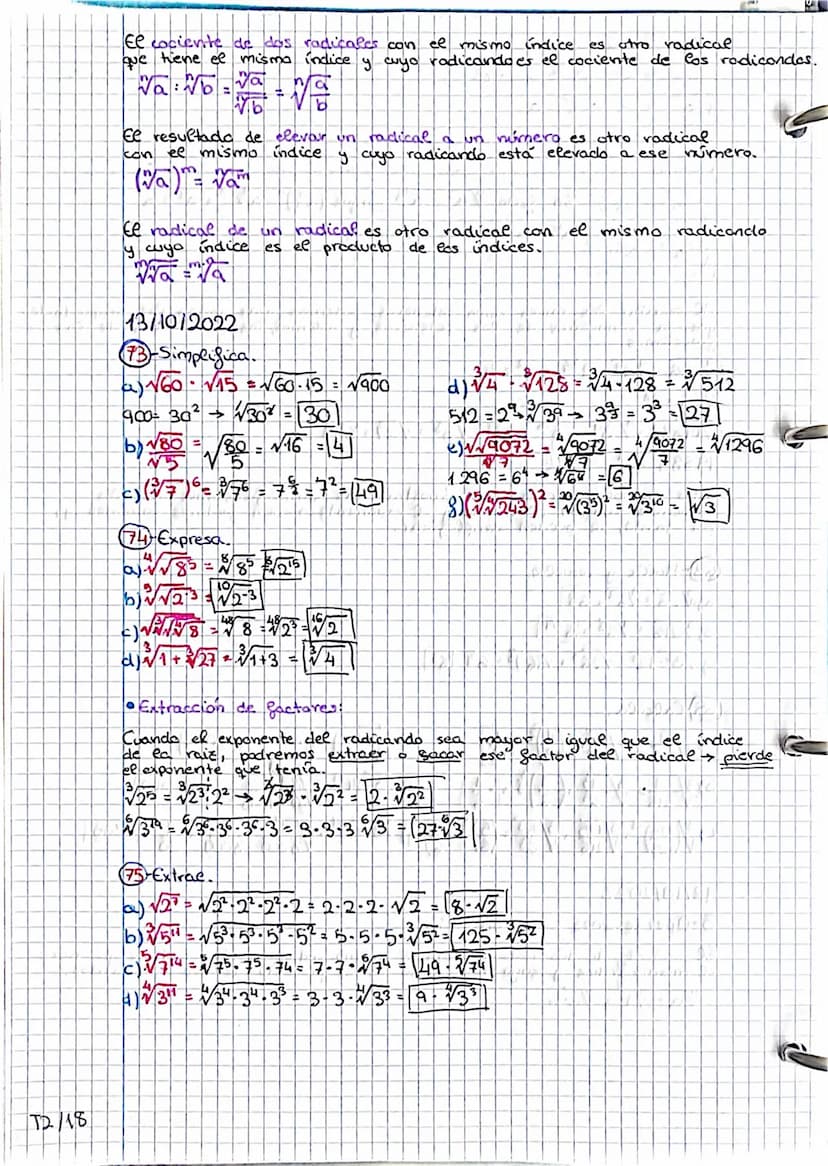 El cociente de dos radicales con el mismo índice es otro radical
que tiene el mismo índice y cuyo radicando es el cociente de los radicandos.
ⁿ√a : ⁿ√b = ⁿ√a / ⁿ√b = ⁿ√(a/b)
El resultado de elevar un radical a un número es otro radical
con el mismo índice y cuyo radicando está elevado a ese número.
(ⁿ√a)ᵐ = ⁿ√aᵐ
El radical de un radical es otro radical con el mismo radicando
y cuyo índice es el producto de los índices.
ᵐ√ⁿ√a = ᵐ·ⁿ√a
13/10/2022
73-Simplifica.
a) √60 · √15 = √60·15 = √900
900 = 30² → ²√30² = 30
b) √80/√5 = √(80/5) = √16 = 4
c) (³√7)⁶ = ³√7⁶ = 7^(6/3) = 7² = 49
d) ³√4 · ³√128 = ³√4·128 = ³√512
512 = 2⁹ ³√3⁹ → 3^(9/3) = 3³ = 27
e) √√9072/⁴√7 = ⁴√9072/⁴√7 = ⁴√(9072/7) = ⁴√1296
1296 = 6⁴ → ⁴√6⁴ = 6
f) (⁵√⁴√243)² = ²⁰√(3⁵)² = ²⁰√3¹⁰ = √3
74-Expresa.
a) ⁴√√8⁵ = ⁸√8⁵ ⁸√2¹⁵
b) ⁵√√2⁻³ = ¹⁰√2⁻³
c) √³√√⁴√8 = ⁴⁸√8 = ⁴⁸√2³ = ¹⁶√2
d) ³√1+³√27 = ³√1+3 = ³√4
• Extracción de factores:
Cuando el exponente del radicando sea mayor o igual que el índice
de la raiz, podremos extraer o sacar ese factor del radical → pierde
el exponente que tenía.
³√2⁵ = ³√2³·2² → ³√2³ · ³√2² = 2·³√2²
⁶√3¹⁹ = ⁶√3⁶·3⁶·3⁶·3 = 3·3·3 ⁶√3 = 27·⁶√3
75-Extrae.
a) √2⁷ = √2²·2²·2²·2 = 2·2·2·√2 = 8·√2
b) ³√5¹¹ = √5³·5³·5³·5² = 5·5·5·³√5² = 125·³√5²
c) ⁵√7¹⁴ = ⁵√7⁵·7⁵·7⁴ = 7·7·⁵√7⁴ = 49·⁵√7⁴
d) ⁴√3¹¹ = ⁴√3⁴·3⁴·3³ = 3·3·⁴√3³ = 9·⁴√3³
T2/18